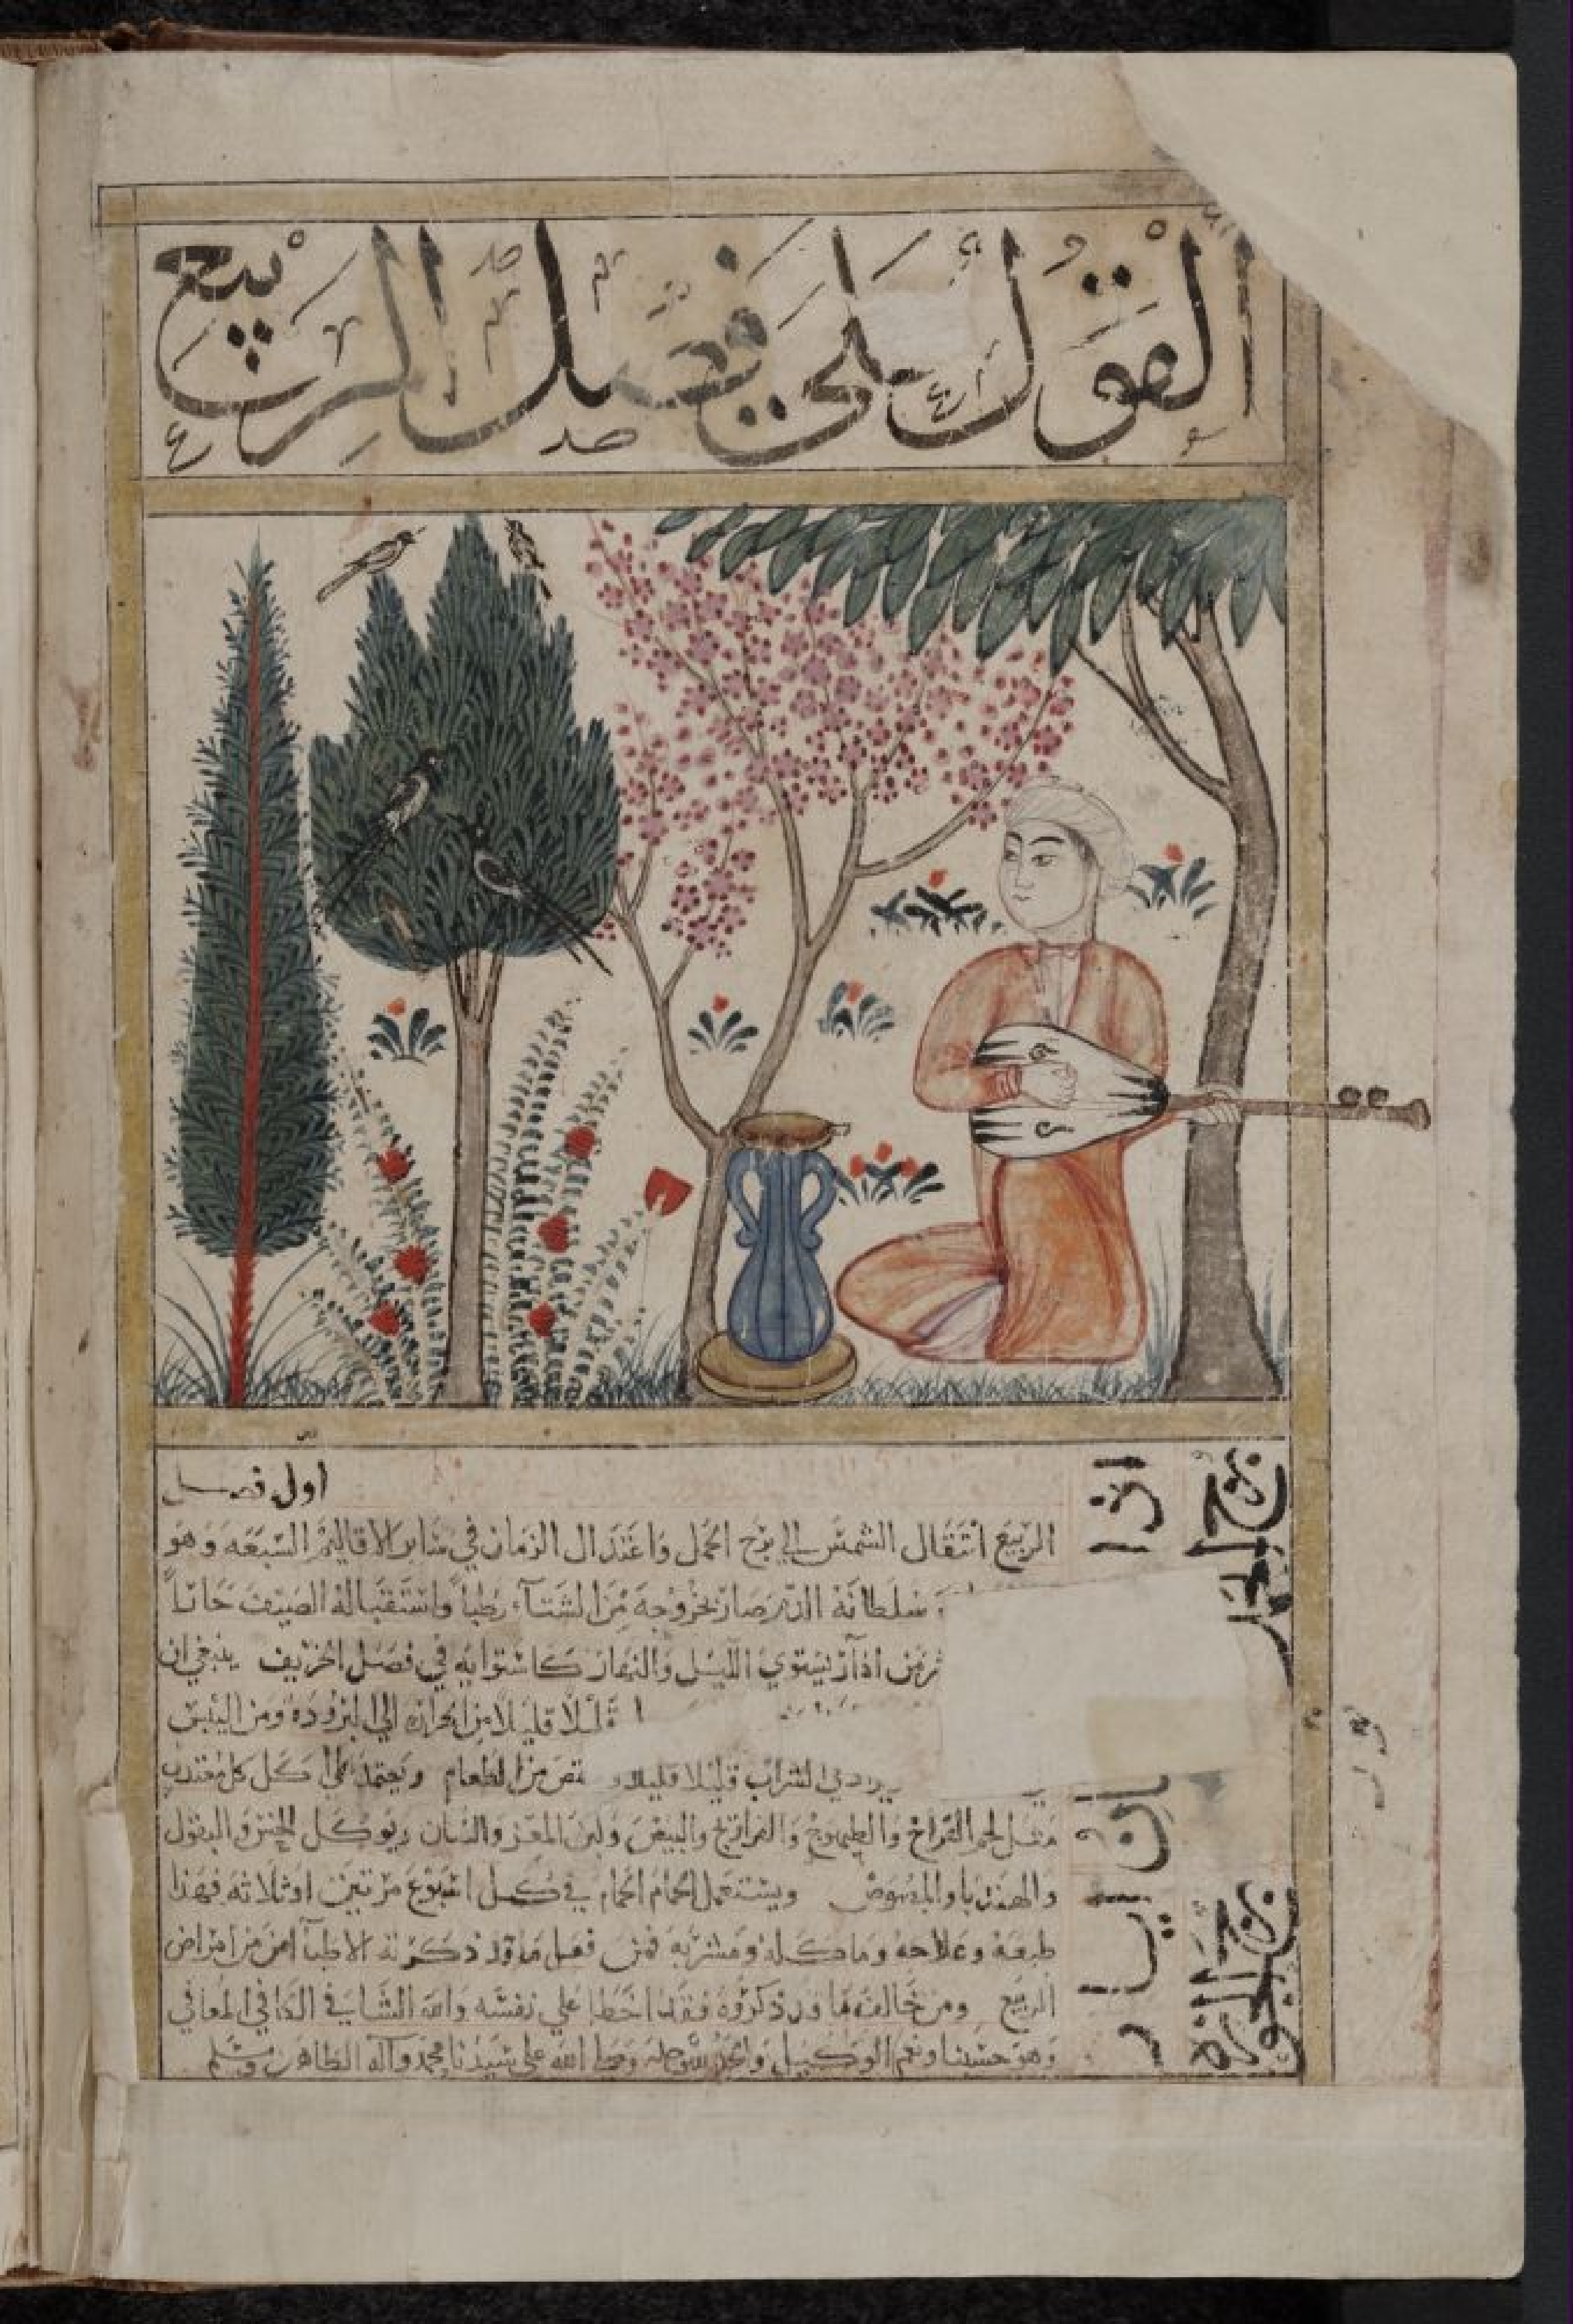 القول على فصل الربيع
اول فصل
الربيع انتقال الشمس الي برج الحمل واعتدال الزمان في سائر الاقاليم السبعة وهو
سلطانة الدم صار بخروجه من الشتاء رطباً واستقباله الصيف حاراً
من اذار يستوي الليل والنهار كاستوايه في فصل الخريف ينبغي ان
قليلا قليلا من الحرارة الي البرودة ومن اليبس
الشراب قليلا قليلا من الطعام ويعتمد علي اكل كل معتدل
مثل لحم الفراخ والطيهوج والفراريج والبيض ولبن المعز والبان ويوكل الخس والبقول
والهندبا والمصوص ويستعمل الحمام الحمام في كل اسبوع مرتين او ثلاثة فهذا
طبعه وعلاجه وماكله ومشربه فمن فعل ما قد ذكرته الاطبا امن من امراض
الربيع ومن خالف ما قد ذكروه فقد اخطا علي نفسه والله الشافي المعافي
وهو حسبنا ونعم الوكيل والحمد لله وحده وصلي الله علي سيدنا محمد وآله الطاهرين وسلم
برج الحمل
اذار
ايار
برج الجوزا